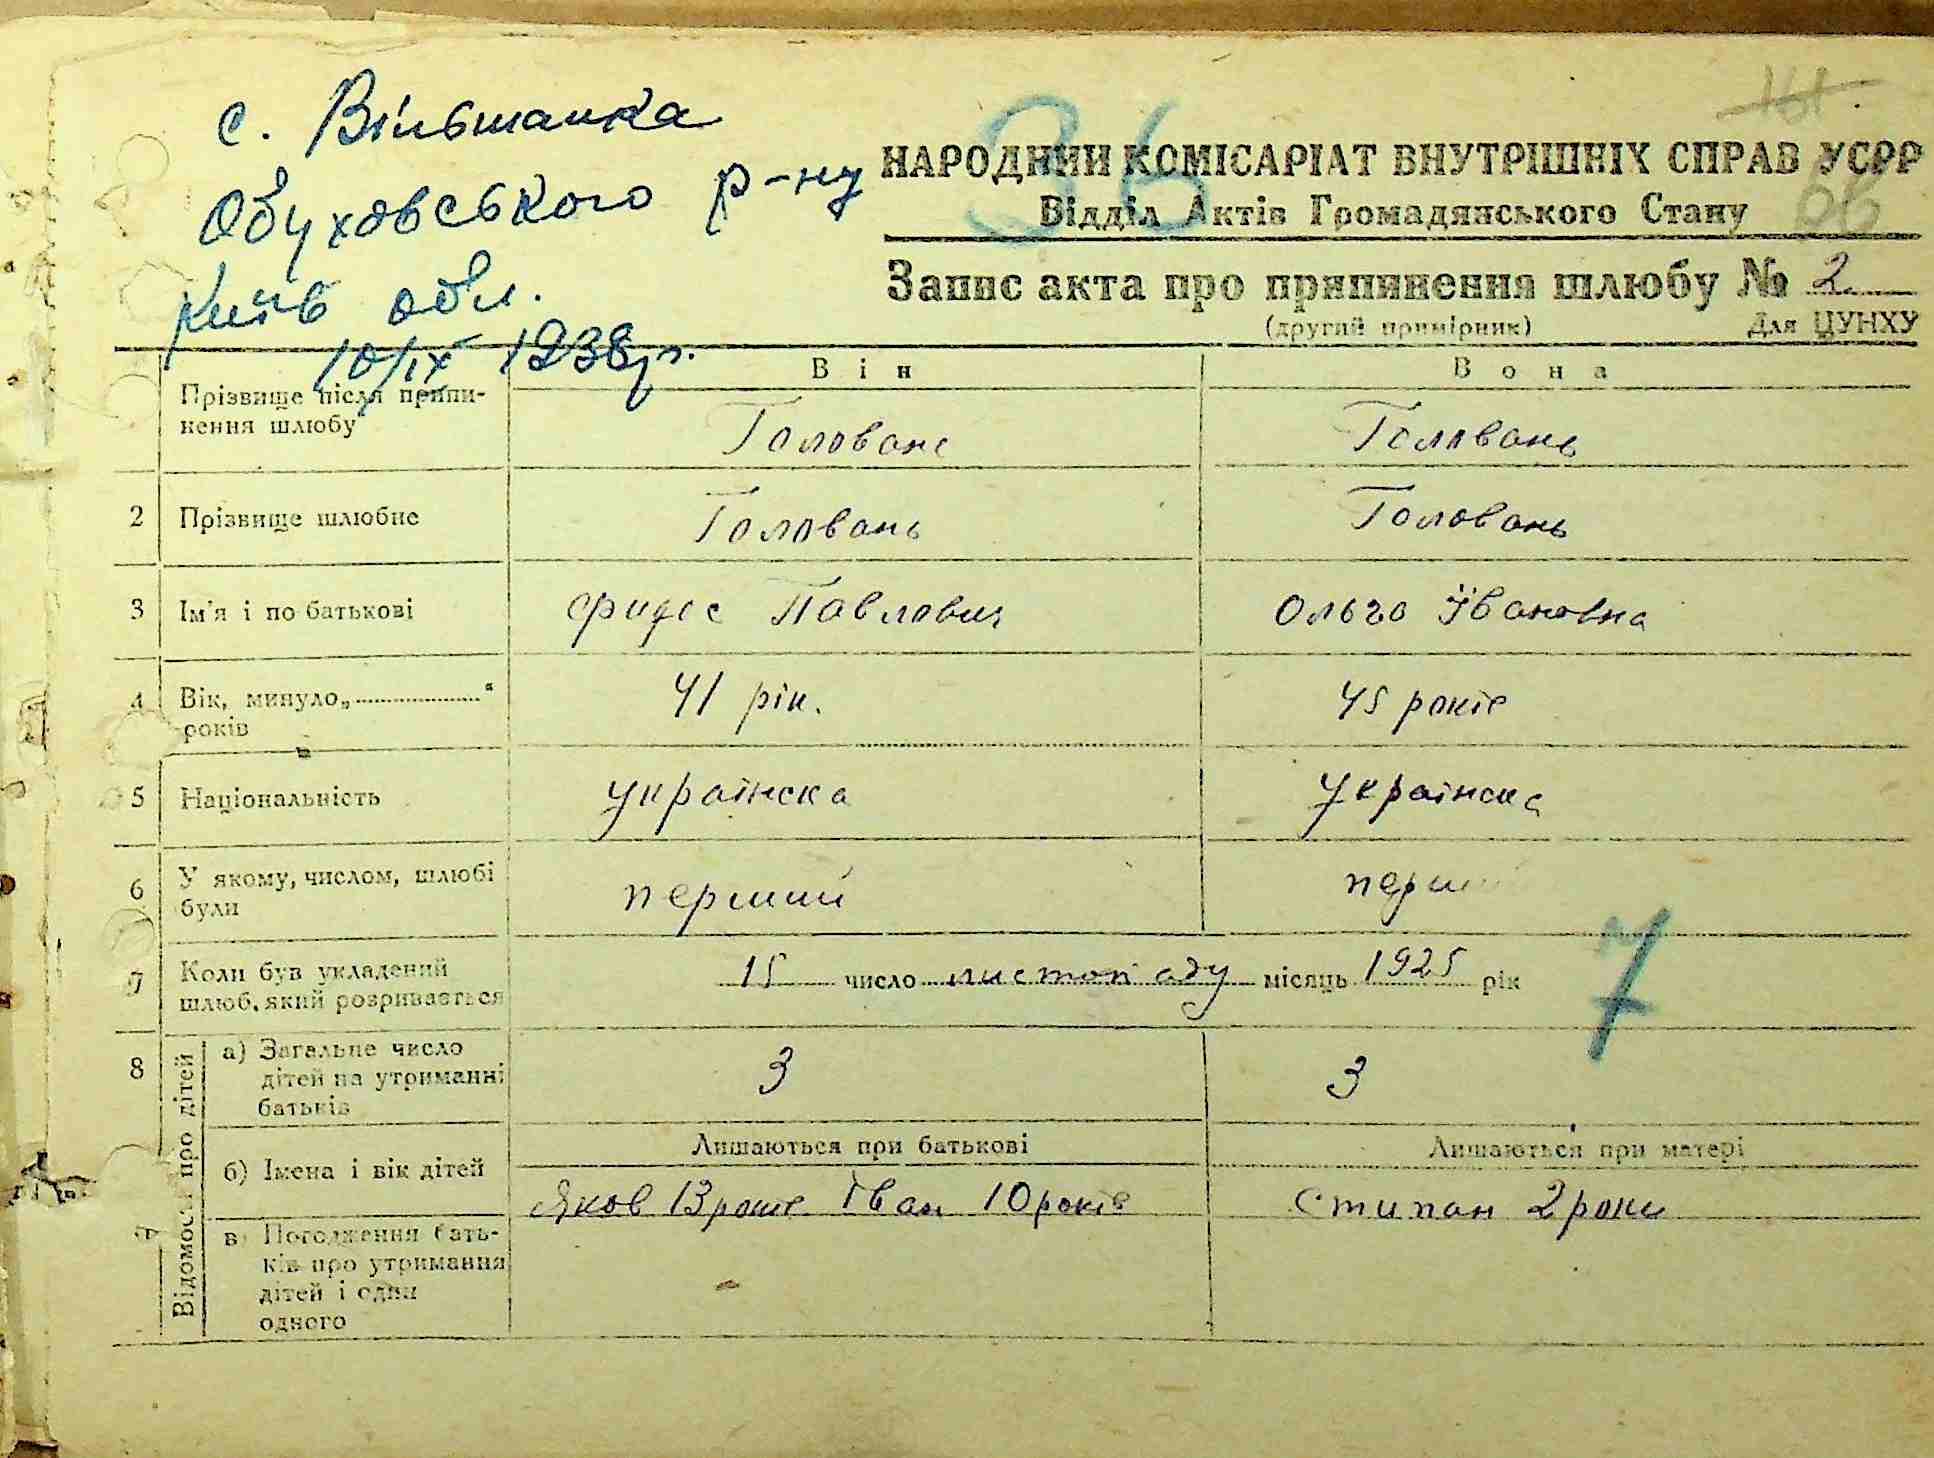 с. Вільшанка
Обуховського р-ну
Київ обл.
10/ІХ 1938 р.
161
36
66
НАРОДНИЙ КОМІСАРІАТ ВНУТРІШНІХ СПРАВ УСРР
Відділ Актів Громадянського Стану
Запис акта про припинення шлюбу № 2
(другий примірник) Для ЦУНХУ
Він Вона
Прізвище після припи-
нення шлюбу Головань Головань
2 Прізвище шлюбне Головань Головань
3 Ім'я і по батькові Павлович Ольга Ївановна
4 Вік, минуло „ “ 41 рік. 45 років
років
5 Національність українска українска
6 У якому, числом, шлюбі
були перший перш
7 Коли був укладений
шлюб, який розривається 15 число листопаду місяць 1925 рік
7
8 Відомості про дітей
а) Загальне число
дітей на утриманні
батьків 3 3
Лишаються при батькові Лишаються при матері
б) Імена і вік дітей Яков 13 років Іван 10 років Стипан 2 роки
в) Погодження бать-
ків про утримання
дітей і один
одного